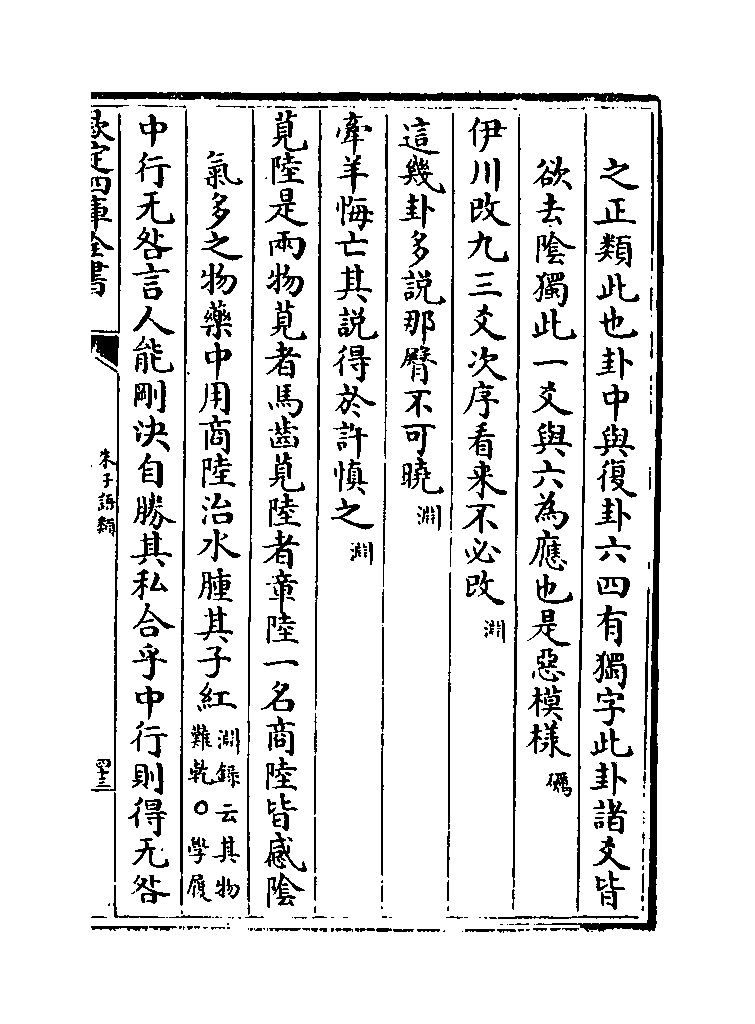 之正類此也卦中與復卦六四有獨字此卦諸爻皆
欲去陰獨此一爻與六為應也是惡模樣 礪
伊川改九三爻次序看来不必改 淵
這幾卦多説那臀不可曉 淵
牽羊悔亡其説得於許慎之 淵
莧陸是兩物莧者馬齒莧陸者章陸一名商陸皆感陰
氣多之物藥中用商陸治水腫其子紅 淵録云其物難乾〇學履
中行无咎言人能剛決自勝其私合乎中行則得无咎
欽定四庫全書
朱子語類
四十三